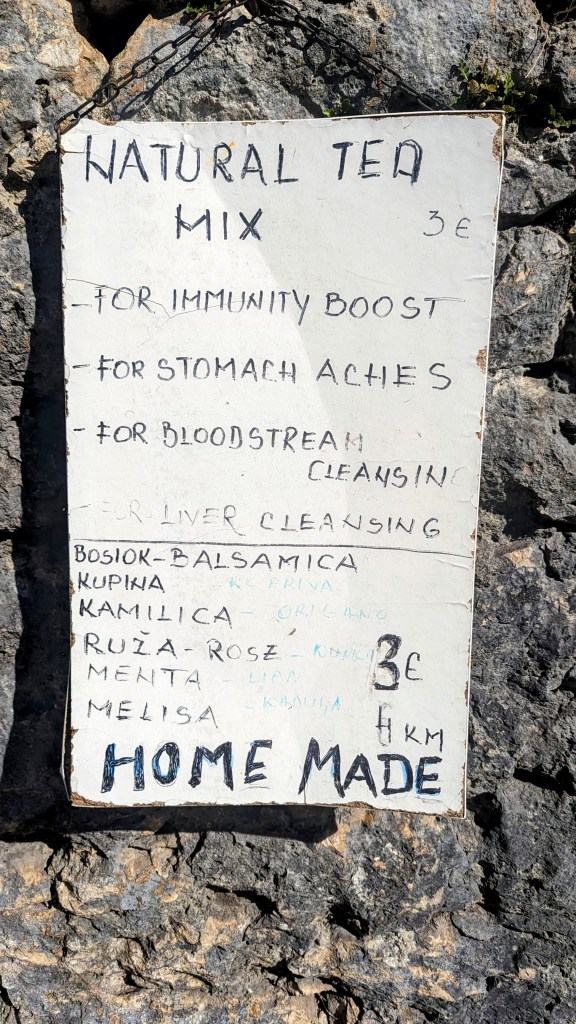 NATURAL TEA
MIX 3 €
- FOR IMMUNITY BOOST
- FOR STOMACH ACHES
- FOR BLOODSTREAM
CLEANSING
- FOR LIVER CLEANSING
BOSIOK-BALSAMICA
KUPINA KOPRIVA
KAMILICA - ORIGANO
RUŽA - ROSE - 3 €
MENTA - LIPA
MELISA - KADULJA KM
HOME MADE